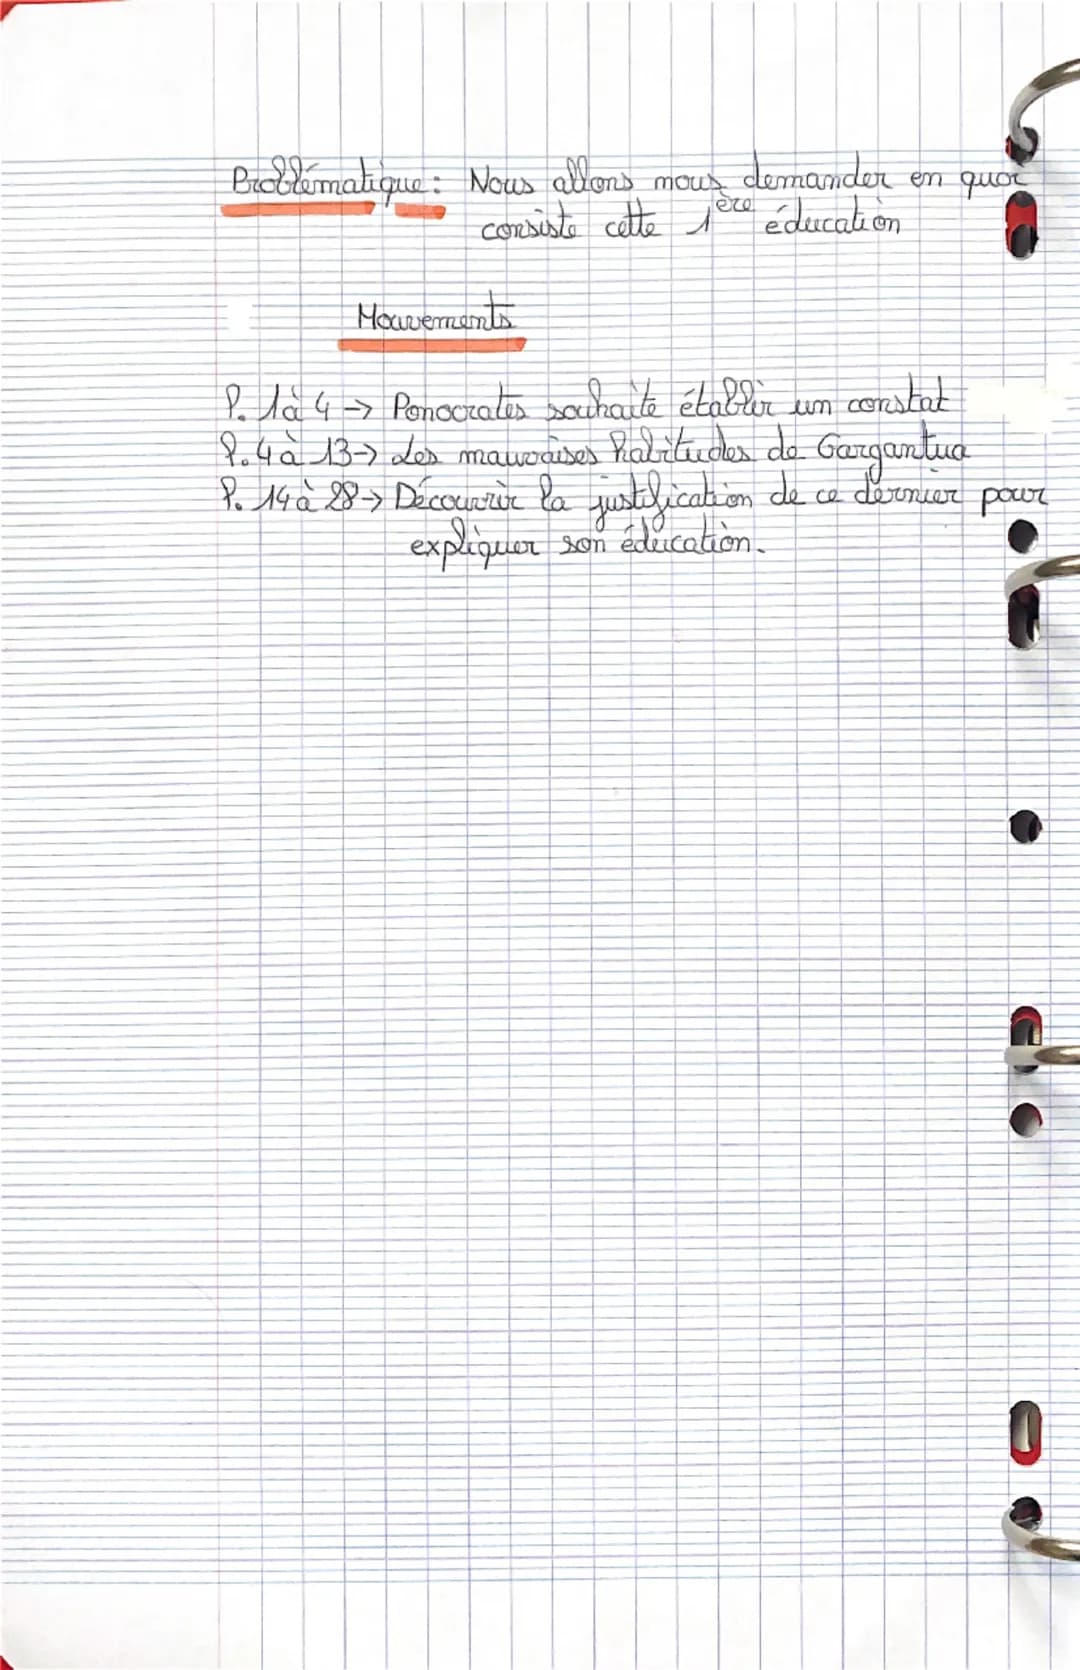 Problématique : Nous allons nous demander en quoi
consiste cette 1ère éducation
Mouvements
l. 1 à 4 → Ponocrates souhaite établir un constat
l. 4 à 13 → Les mauvaises habitudes de Gargantua
l. 14 à 28 → Découvrir la justification de ce dernier pour
expliquer son éducation.